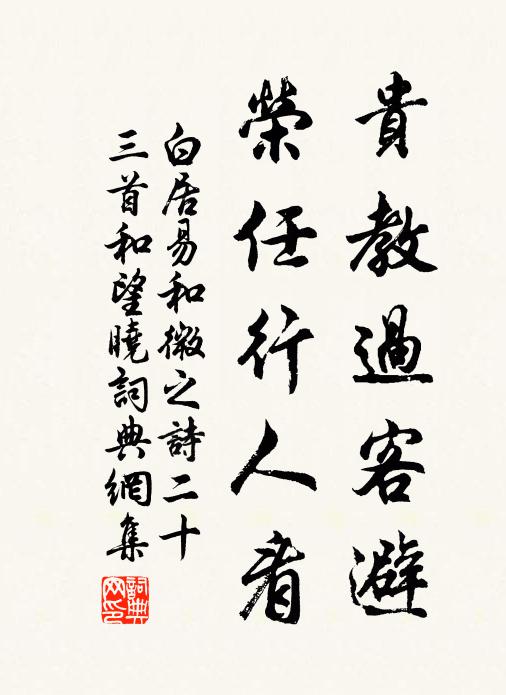 貴教過客避
榮任行人看
白居易和微之詩二十
三首和望曉詞典網集
詞典